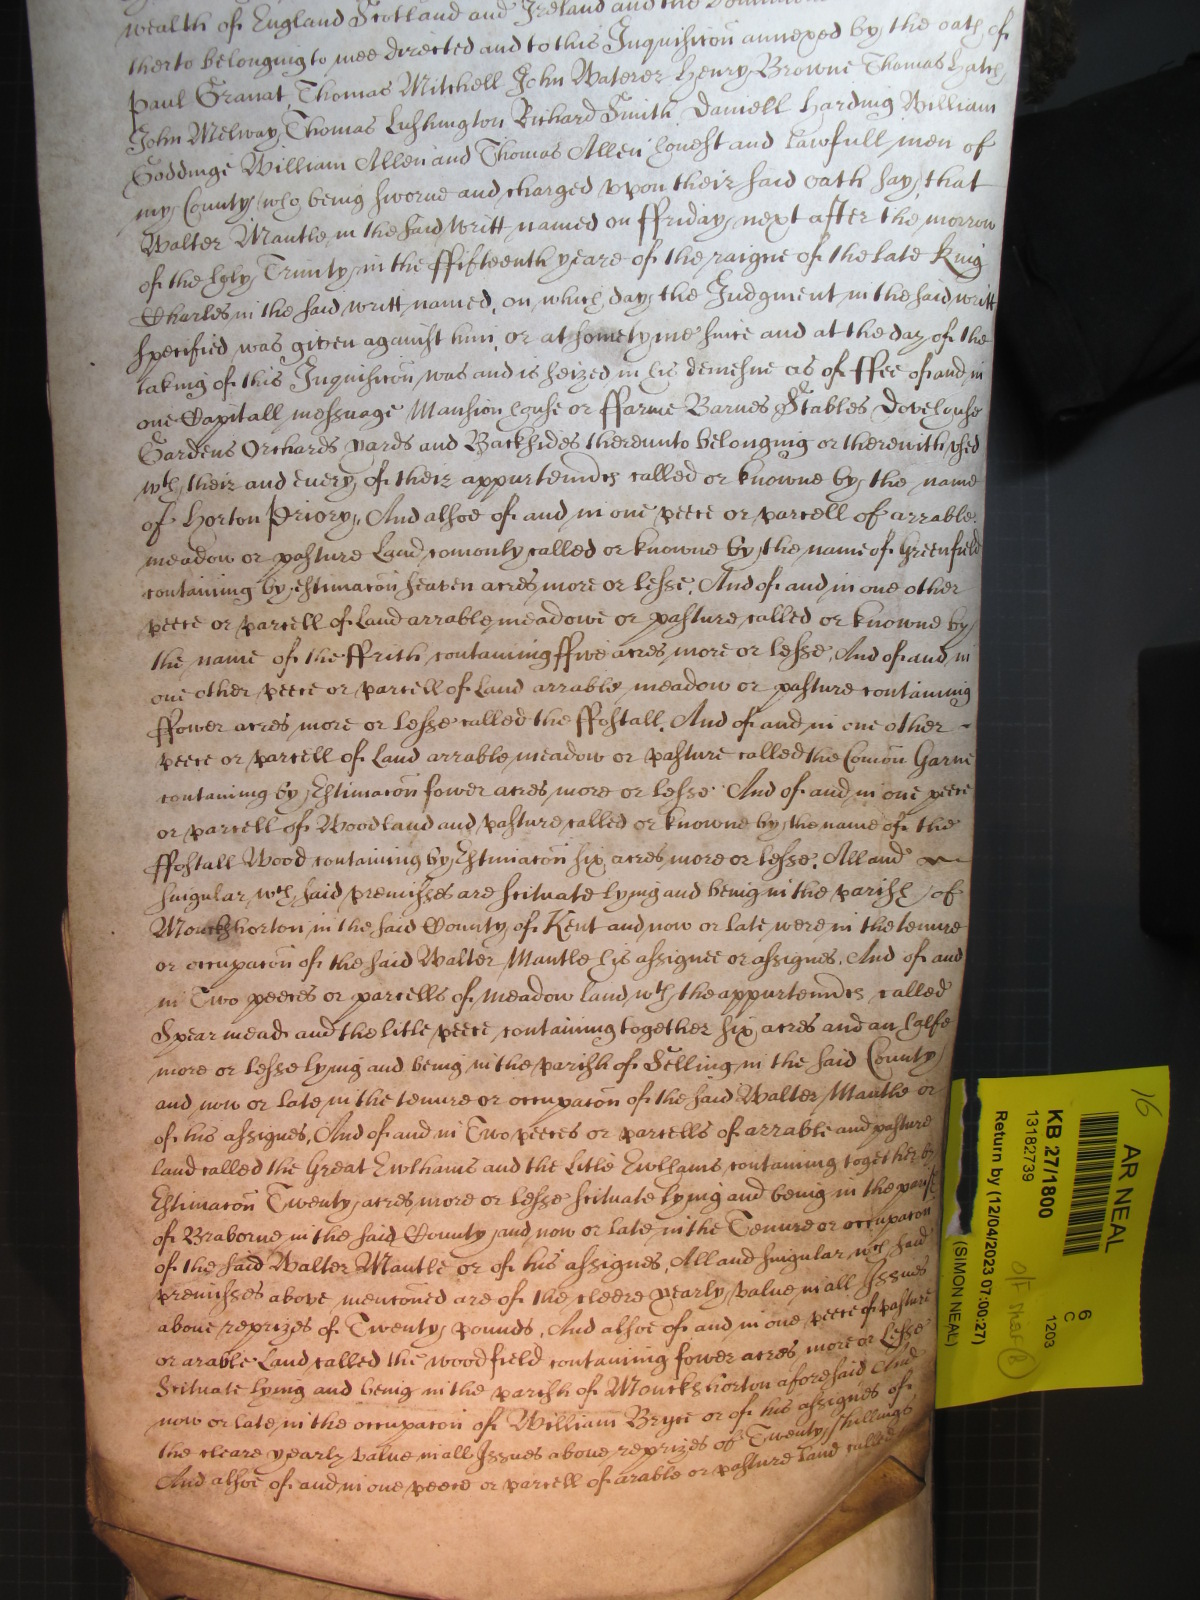 wealth of England Scotland and Ireland and the
therto belonging to mee directed and to this Inquisicõn annexed by the oath of
Paul Granat Thomas Mitchell John Waterer Henry Browne Thomas Hatch
John Melway Thomas Lushington Richard Smith Daniell Harding William
Goddinge William Allen and Thomas Allen honest and Lawfull men of
my County who being sworne and charged upon their said oath say that
Walter Mantle in the said writt named on ffriday next after the morrow
of the holy Trinity in the ffifteenth yeare of the raigne of the late King
Charles in the said writt named, on which day the Judgment in the said writt
specified was given against him, or at some tyme since and at the day of the
taking of this Inquisicõn was and is seized in his demesne as of ffee of and in
one Capitall messuage Mansion house or ffarme Barnes Stables Dovehouse
Gardens Orchards yards and Backsides thereunto belonging or therewith used
wth their and every of their appurtenñcs called or knowne by the name
of Horton Priory, And alsoe of and in one peece or parcell of arrable
meadow or pasture Land comonly called or knowne by the name of Greenfield
containing by estimacõn seaven acres more or lesse, And of and in one other
peece or parcell of Land arrable meadowe or pasture called or knowne by
the name of the ffrith containing ffive acres more or lesse, And of and in
one other peece or parcell of Land arrable meadow or pasture containing
ffower acres more or lesse called the ffostall, And of and in one other -
peece or parcell of Land arrable meadow or pasture called the Comõn Garne
containing by Estimacõn fower acres more or lesse And of and in one peece
or parcell of Woodland and pasture called or knowne by the name of the
ffostall Wood containing by Estimacõn six acres more or lesse, All and
singular wch said premisses are scituate lying and being in the parish of
Monckshorton in the said County of Kent and now or late were in the tenure
or occupacõn of the said Walter Mantle his assignee or assignes, And of and
in Two peeces or parcells of meadow land wth the appurtenñcs called
Spear mead and the litle peece containing together six acres and an halfe
more or lesse lying and being in the parish of Selling in the said County
and now or late in the tenure or occupacõn of the said Walter Mantle or
of his assignes, And of and in Two peeces or parcells of arrable and pasture
land called the Great Ewlhams and the Litle Ewlhams containing together by
Estimacõn Twenty acres more or lesse scituate lying and being in the parish
of Braborne in the said County and now or late in the Tenure or occupacõn
of the said Walter Mantle or of his assignes, All and singular wch said
premisses above mencõned are of the cleere yearly value in all Issues
above reprizes of Twenty pounds, And alsoe of and in one peece of pasture
or arable Land called the woodfield containing fower acres more or Lesse
Scituate lying and being in the parish of Monckshorton aforesaid And
now or late in the occupacõn of William Bryce or of his assignes of
the cleare yearly value in all Issues above reprizes of Twenty shillings
And alsoe of and in one peece or parcell of arable or pasture Land called
16
AR NEAL
KB 27/1800
13182739
Return by (12/04/2023 07:00:27)
(SIMON NEAL)
6
C
1203